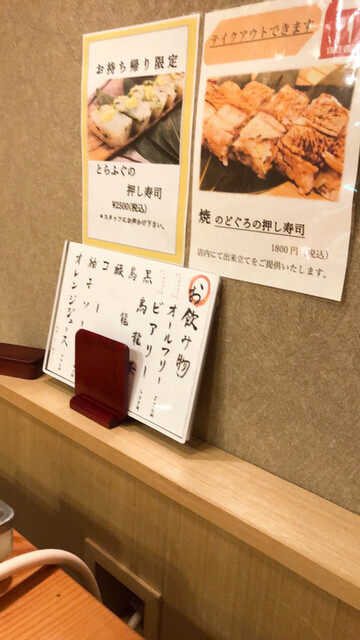 お持ち帰り限定
とらふぐの
押し寿司
¥2500(税込)
*スタッフにお声かけ下さい。
テイクアウトできます
焼 のどぐろの押し寿司
1800円(税込)
店内にて出来立てをご提供いたします。
お飲み物
オールフリー
ビアリー
黒烏龍茶
烏龍茶
コーラ
オレンジジュース